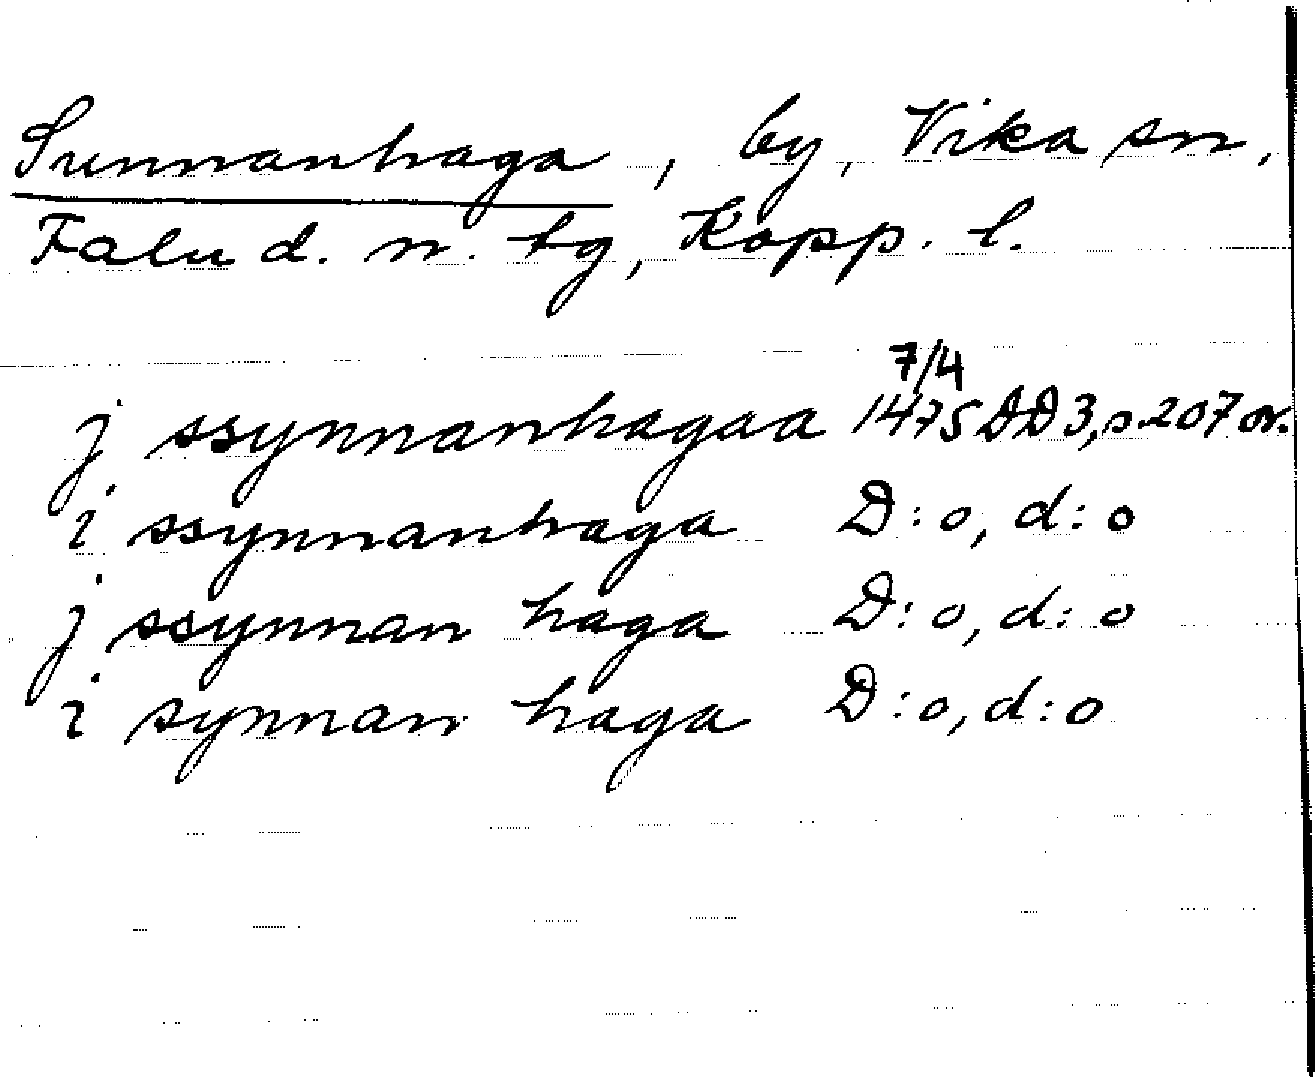 Sunnanhaga, by, Vika sn,
Falu d. n. tg, Kopp. l.
7/4
j ssynnanhagaa 1475 DD3, s. 207 or.
i ssynnanhaga D:o, d:o
j ssynnan haga D:o, d:o
i synnan haga D:o, d:o